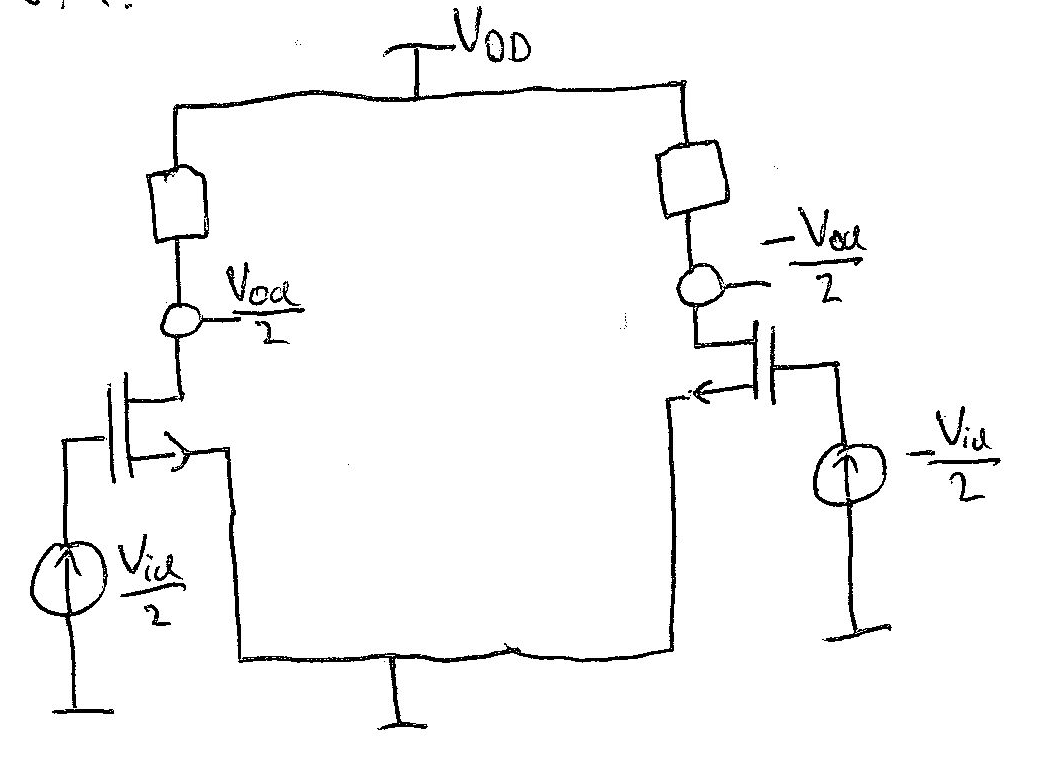 VDD
Vod
2
-Vod
2
-Vid
2
Vid
2